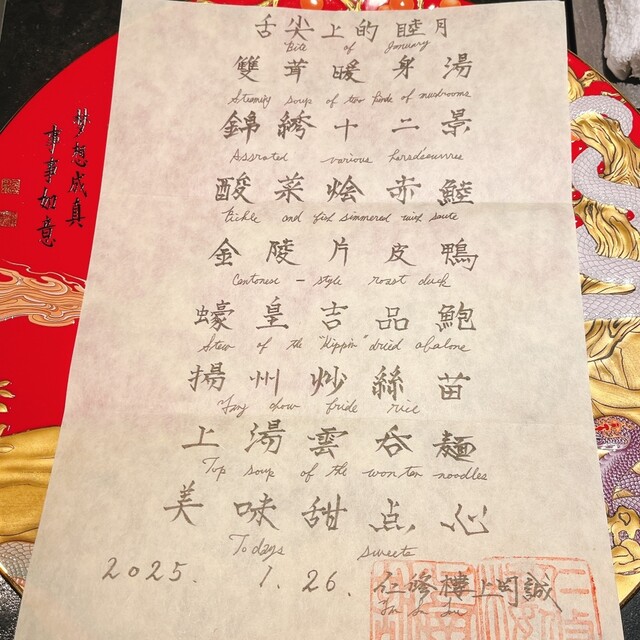 舌尖上的睦月
Bite of January
雙茸暖身湯
Steaming soups of two kinds of mushrooms
錦綉十二景
Assrated various horsdoeuvres
酸菜烩赤鯥
Pickle and fish simmered with saute
金陵片皮鴨
Cantonese - style roast duck
蠔皇吉品鮑
Stew of the "Kippin" dried abalone
揚州炒絲苗
Yang chow fride rice
上湯雲呑麺
Top soup of the won ton noodles
美味甜点心
Todays sweets
2025. 1. 26. 仁修樓上岡誠
梦想成真
事事如意